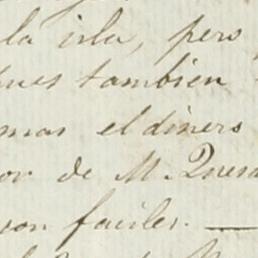 la isla, pero
pues tambien
mas el dinero
por de M. Quesa
son faciles. —